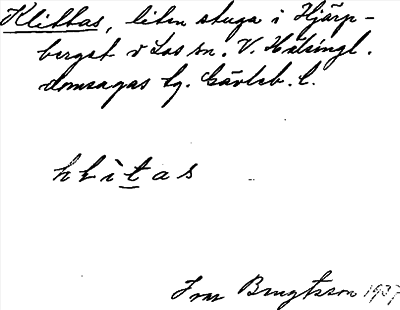 Klittas, liten stuga i Hjärp-
berget v Los sn. V. Hälsingl.
domsagas tg. Gävleb. l.
k l ì t a s
Ivar Bengtsson 1937